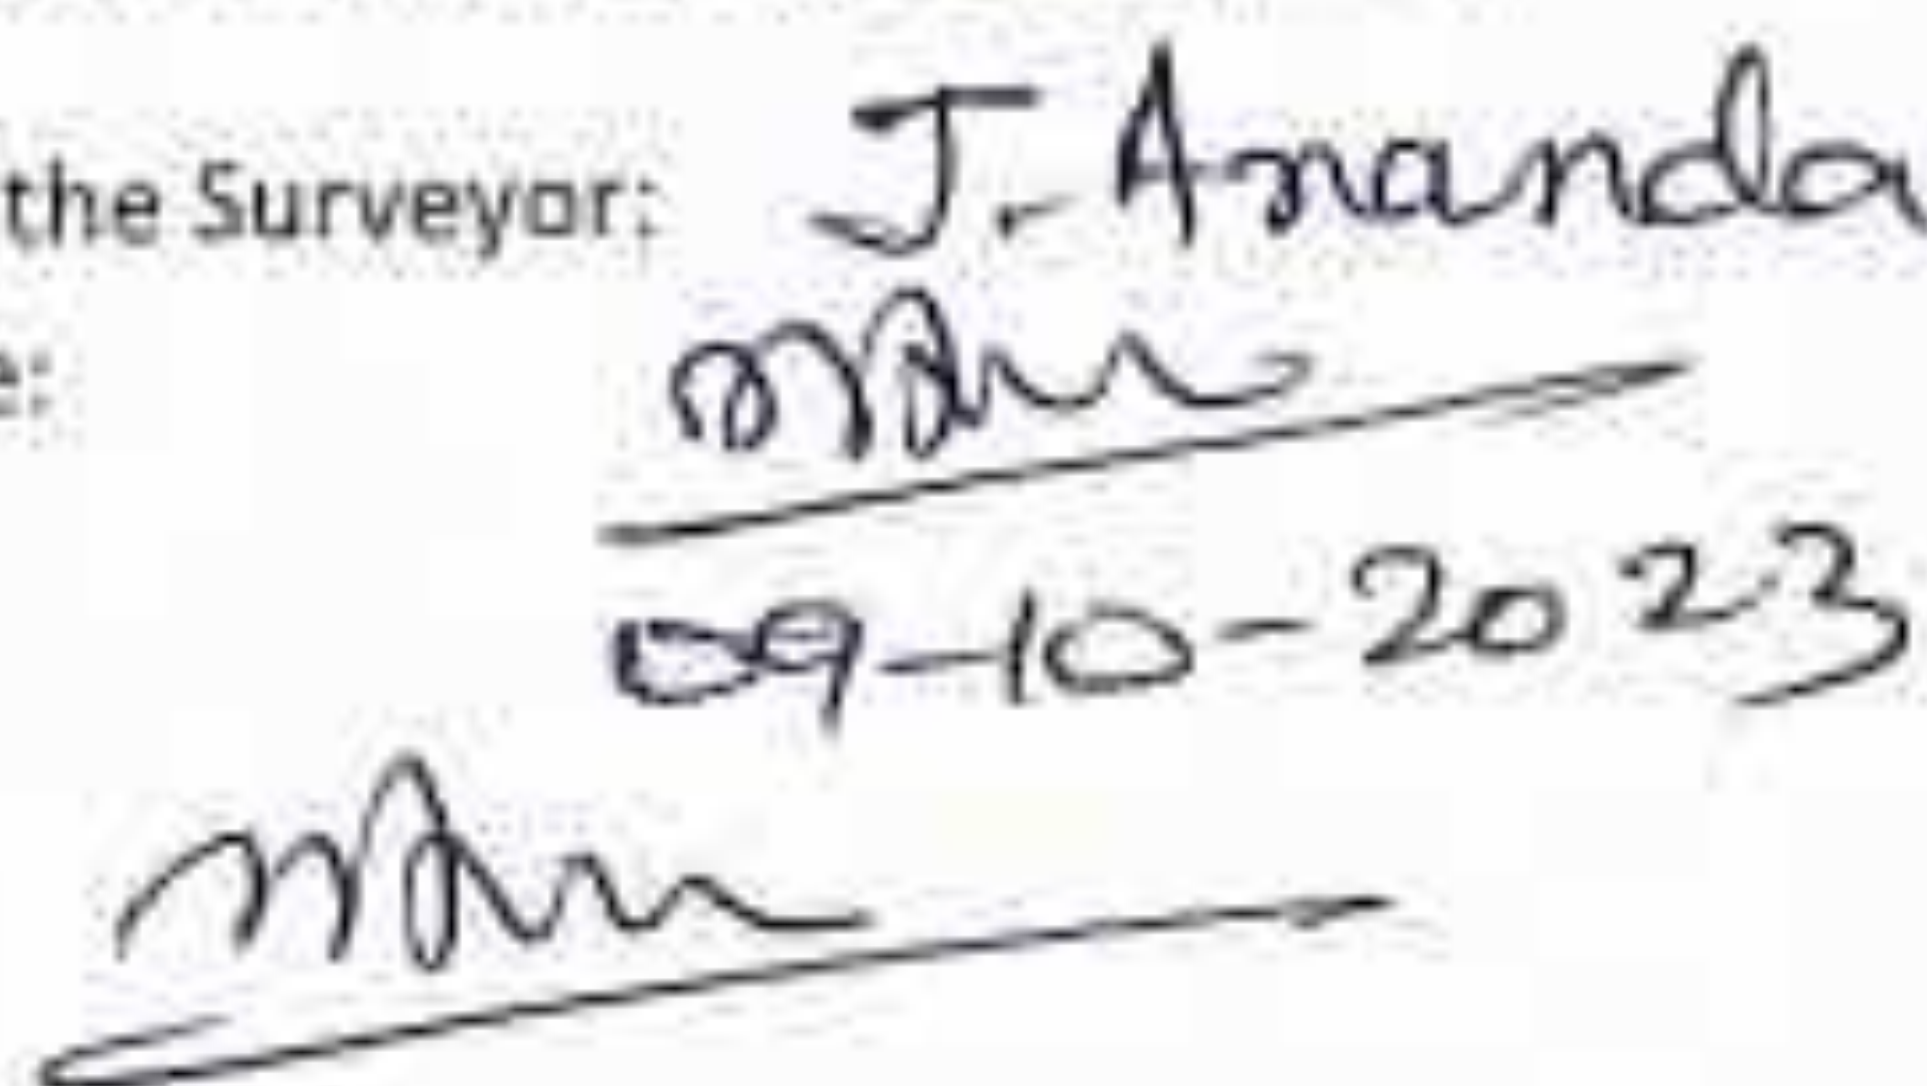 the Surveyor: J. Ananda
e:
09-10-2023